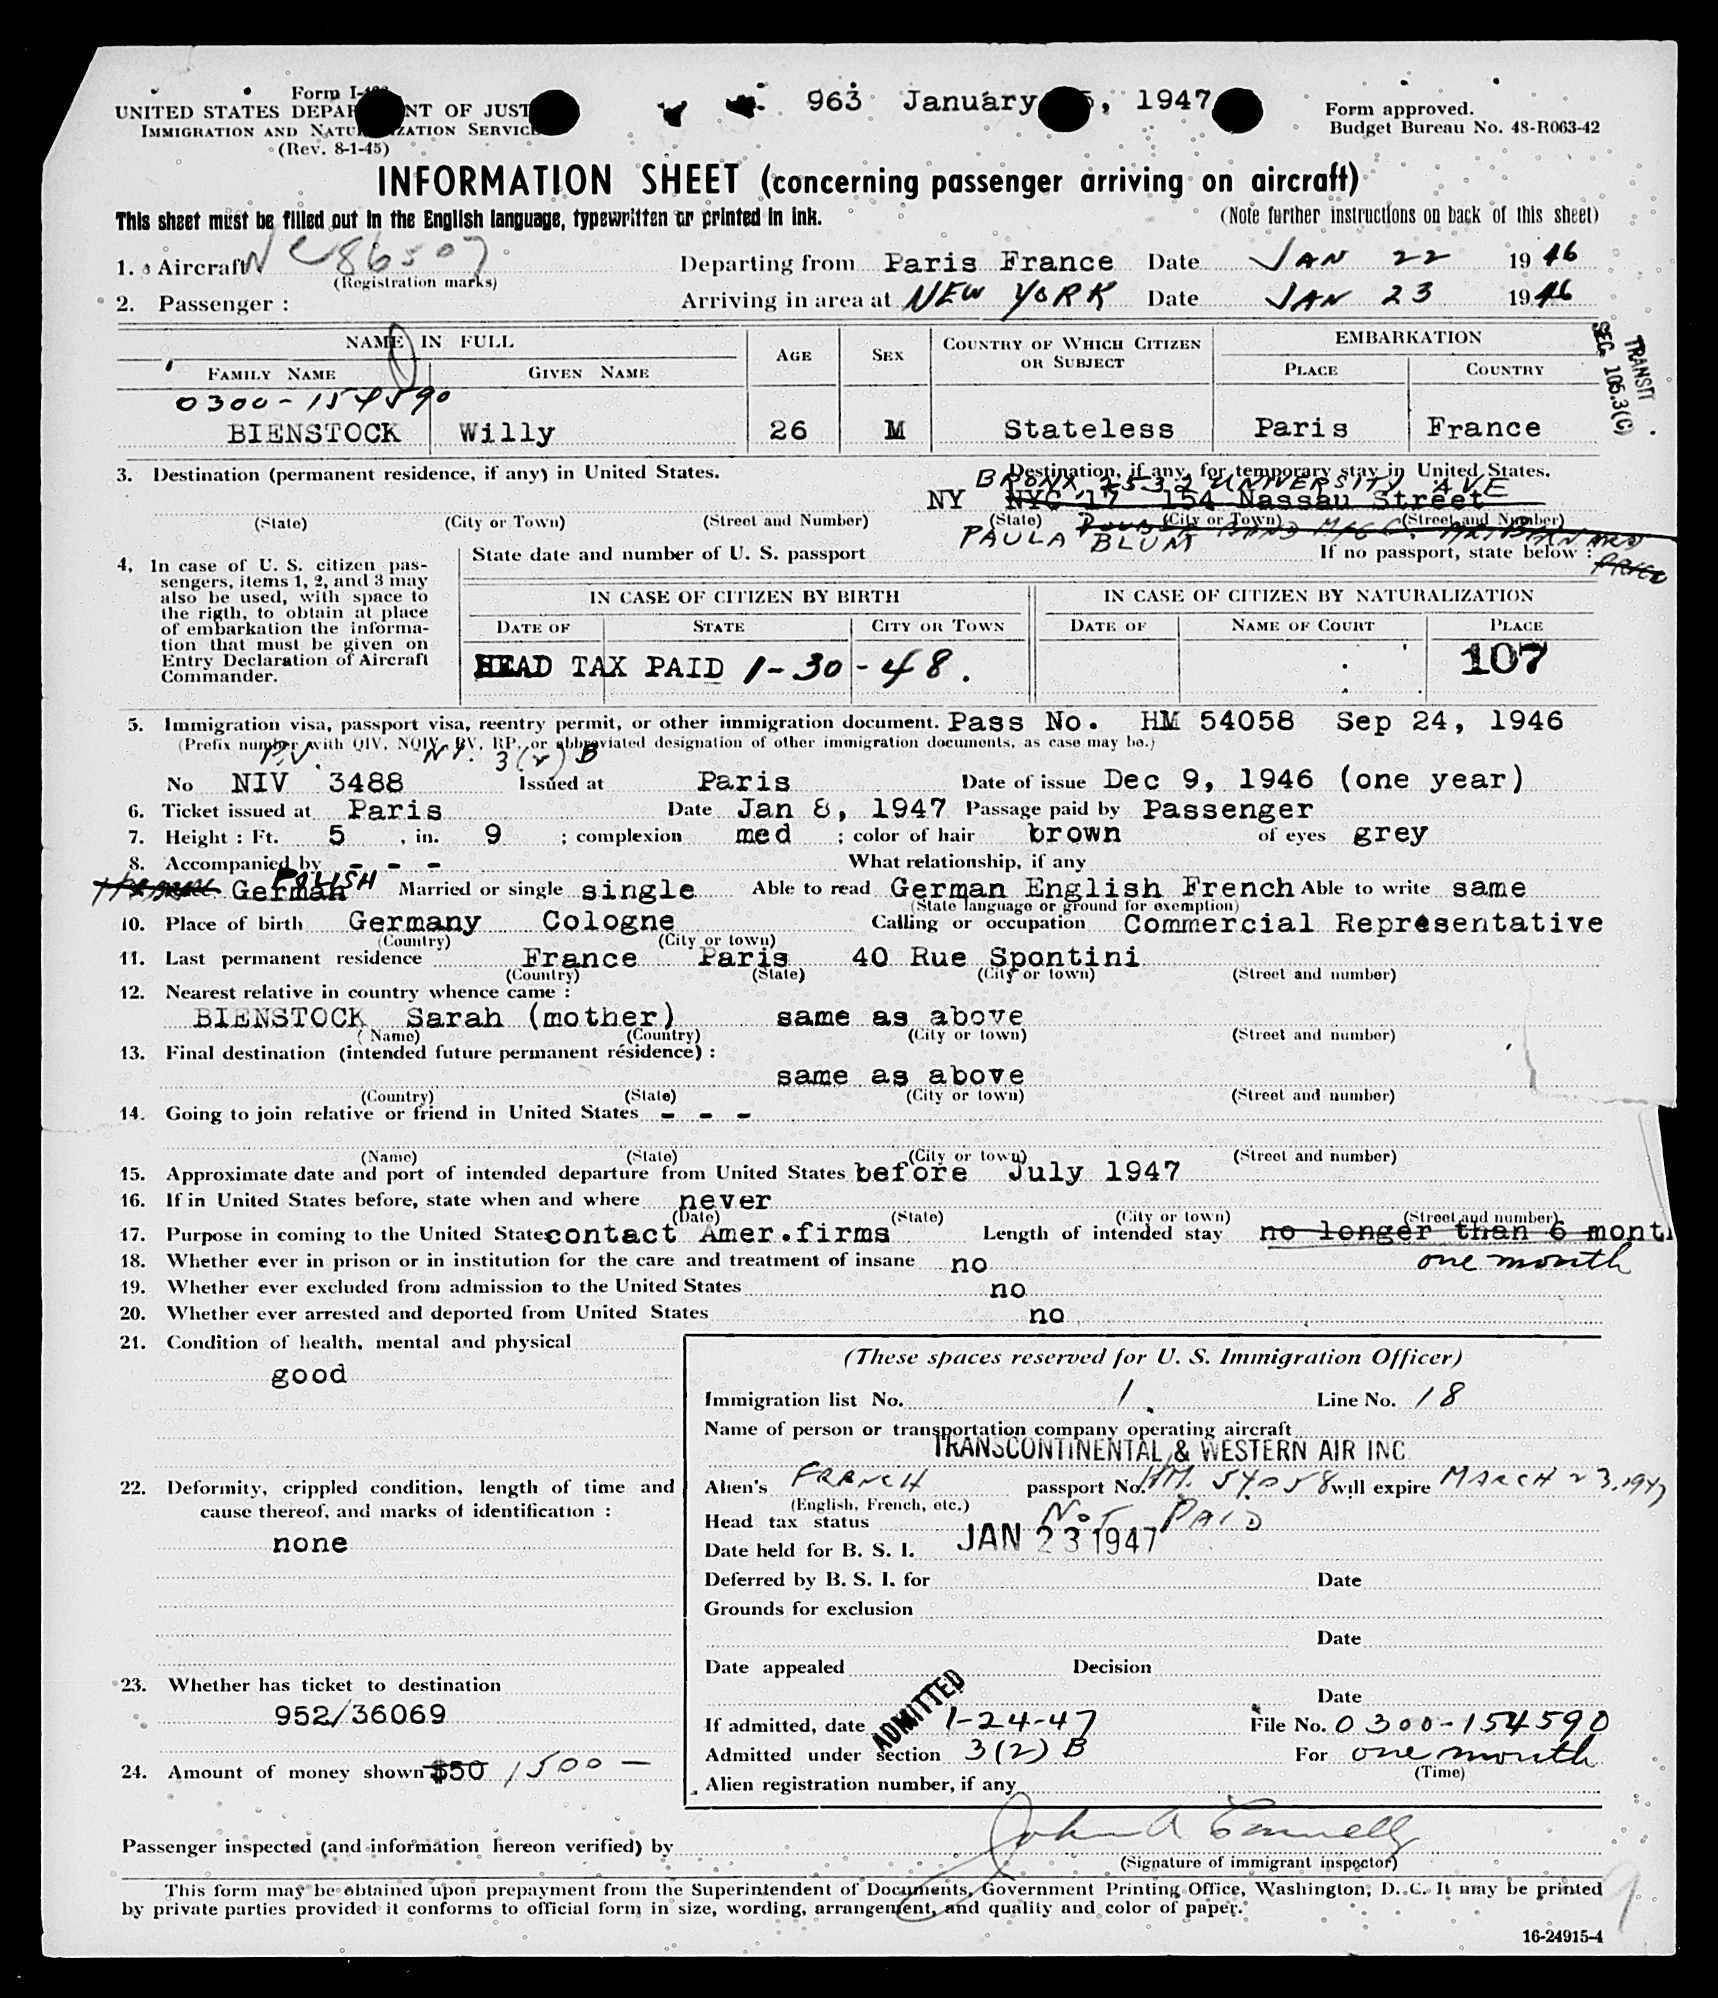 963 January 1947
Form I-
UNITED STATES DEPAR NT OF JUST
IMMIGRATION AND NATU ZATION SERVICE
(Rev. 8-1-45)
Form approved.
Budget Bureau No. 43-R063-42
INFORMATION SHEET (concerning passenger arriving on aircraft)
This sheet must be filled out in the English language, typewritten or printed in ink.
(Note further instructions on back of this sheet)
1. Aircraft NC 86507 Departing from Paris France Date JAN 22 1946
(Registration marks)
2. Passenger : Arriving in area at NEW YORK Date JAN 23 1946
NAME IN FULL AGE SEX COUNTRY OF WHICH CITIZEN OR SUBJECT EMBARKATION
FAMILY NAME GIVEN NAME PLACE COUNTRY
TRANSIT
SEC. 105.3(C)
0300-154590
BIENSTOCK Willy 26 M Stateless Paris France
3. Destination (permanent residence, if any) in United States. Destination, if any, for temporary stay in United States.
BRONX 2532 UNIVERSITY AVE
NY NYC 17 154 Nassau Street
(State) (City or Town) (Street and Number) (State) (City or Town) (Street and Number)
PAULA BLUNT
4. In case of U. S. citizen pas-
sengers, items 1, 2, and 3 may
also be used, with space to
the rigth, to obtain at place
of embarkation the informa-
tion that must be given on
Entry Declaration of Aircraft
Commander.
State date and number of U. S. passport If no passport, state below :
IN CASE OF CITIZEN BY BIRTH IN CASE OF CITIZEN BY NATURALIZATION
DATE OF STATE CITY OR TOWN DATE OF NAME OF COURT PLACE
HEAD TAX PAID 1-30-48. 107
5. Immigration visa, passport visa, reentry permit, or other immigration document. Pass No. HM 54058 Sep 24, 1946
(Prefix number with QIV, NQIV, PV, RP, or abbreviated designation of other immigration documents, as case may be.)
P.V. 3(2) B
No NIV 3488 Issued at Paris Date of issue Dec 9, 1946 (one year)
6. Ticket issued at Paris Date Jan 8, 1947 Passage paid by Passenger
7. Height : Ft. 5 , in. 9 ; complexion med ; color of hair brown of eyes grey
8. Accompanied by - - - What relationship, if any
German POLISH Married or single single Able to read German English French Able to write same
(State language or ground for exemption)
10. Place of birth Germany Cologne Calling or occupation Commercial Representative
(Country) (City or town)
11. Last permanent residence France Paris 40 Rue Spontini
(Country) (State) (City or town) (Street and number)
12. Nearest relative in country whence came :
BIENSTOCK Sarah (mother) same as above
(Name) (Country) (City or town) (Street and number)
13. Final destination (intended future permanent résidence) :
same as above
(Country) (State) (City or town) (Street and number)
14. Going to join relative or friend in United States - - -
(Name) (State) (City or town) (Street and number)
15. Approximate date and port of intended departure from United States before July 1947
16. If in United States before, state when and where never
(Date) (State) (City or town) (Street and number)
17. Purpose in coming to the United States contact Amer.firms Length of intended stay no longer than 6 month
one month
18. Whether ever in prison or in institution for the care and treatment of insane no
19. Whether ever excluded from admission to the United States no
20. Whether ever arrested and deported from United States no
21. Condition of health, mental and physical
good
22. Deformity, crippled condition, length of time and
cause thereof, and marks of identification :
none
23. Whether has ticket to destination
952/36069
24. Amount of money shown $50 1500 —
(These spaces reserved for U. S. Immigration Officer)
Immigration list No. 1. Line No. 18
Name of person or transportation company operating aircraft
TRANSCONTINENTAL & WESTERN AIR INC
Alien's FRENCH passport No. HM. 54058 will expire MARCH 23, 1947
(English, French, etc.)
Head tax status NOT PAID
Date held for B. S. I. JAN 23 1947
Deferred by B. S. I. for Date
Grounds for exclusion
Date
Date appealed Decision
Date
ADMITTED
If admitted, date 1-24-47 File No. 0300-154590
Admitted under section 3(2) B For one month
(Time)
Alien registration number, if any
Passenger inspected (and information hereon verified) by John A Connelly
(Signature of immigrant inspector)
This form may be obtained upon prepayment from the Superintendent of Documents, Government Printing Office, Washington, D. C. It may be printed
by private parties provided it conforms to official form in size, wording, arrangement, and quality and color of paper.
9
16-24915-4